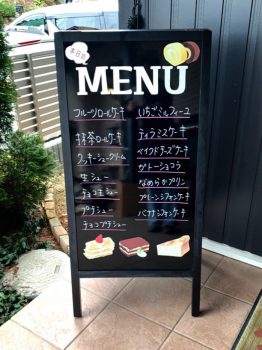 本日の
MENU
フルーツロールケーキ
抹茶ロールケーキ
クッキーシュークリーム
生シュー
チョコ生シュー
プチシュー
チョコプチシュー
いちごミルフィーユ
ティラミスケーキ
ベイクドチーズケーキ
ガトーショコラ
なめらかプリン
プレーンシフォンケーキ
バナナシフォンケーキ